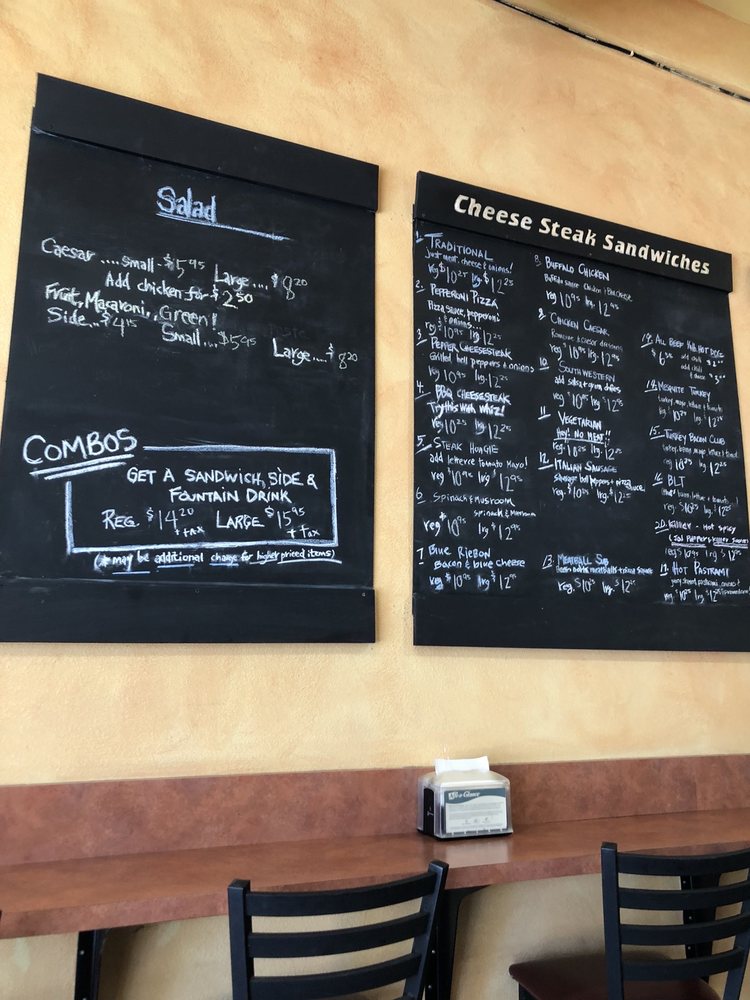 Salad
Caesar .... Small - $5.95 Large ... $8.20
Add chicken for $2.50
Fruit, Macaroni, Green!
Side... $4.15
Small .... $5.95
Large.... $8.20
COMBOS
GET A SANDWICH, SIDE &
FOUNTAIN DRINK
REG. $14.20 LARGE $15.95
+ tax + Tax
(* may be additional charge for higher priced items)
Cheese Steak Sandwiches
1. TRADITIONAL
Just meat, cheese & onions!
reg $10.25 lrg $12.25
2. PEPPERONI PIZZA
Pizza Sauce, pepperoni
& onions...
reg $10.25 lrg. 12.25
3. PEPPER CHEESESTEAK
Grilled bell peppers & onions
reg 10.95 lrg. 12.25
4. BBQ CHEESESTEAK
Try this with Whiz!
reg 10.25 lrg 12.25
5. STEAK HOAGIE
add lettuce tomato Mayo!
reg $10.95 lrg. $12.95
6. Spinach & Mushroom
Spinach & Mushroom
reg $10.95 lrg $12.95
7 Blue Ribbon
Bacon & blue cheese
reg $10.95 lrg $12.95
8. BUFFALO CHICKEN
Buffalo sauce Chicken & blue cheese
reg 10.95 lrg. 12.95
9. CHICKEN CAESAR
Romaine & caesar dressing
reg $10.95 lrg. $12.25
10. SOUTHWESTERN
add salsa & green chilies
reg $10.95 lrg $12.25
11. VEGETARIAN
Hey! NO MEAT!!
reg $10.25 lrg. $12.25
12. ITALIAN SAUSAGE
Sausage bell peppers & pizza sauce.
reg. $10.25 lrg. $12.25
13. MEATBALL SUB
meatballs & pizza sauce
reg. $10.25 lrg. $12.25
ALL BEEF HOT DOGS
$6.50 add chili
add chili
& cheese
14. MESQUITE TURKEY
turkey, mayo, lettuce & tomato
reg 10.25 lrg $12.25
15. TURKEY BACON CLUB
turkey, bacon, mayo, lettuce & tomato
reg 10.25 lrg 12.25
16 BLT
reg $10.25 lrg. $12.25
20. Killer - Hot spicy
reg $10.95 lrg. $12.95
17. HOT PASTRAMI
reg $10.25 lrg. $12.25